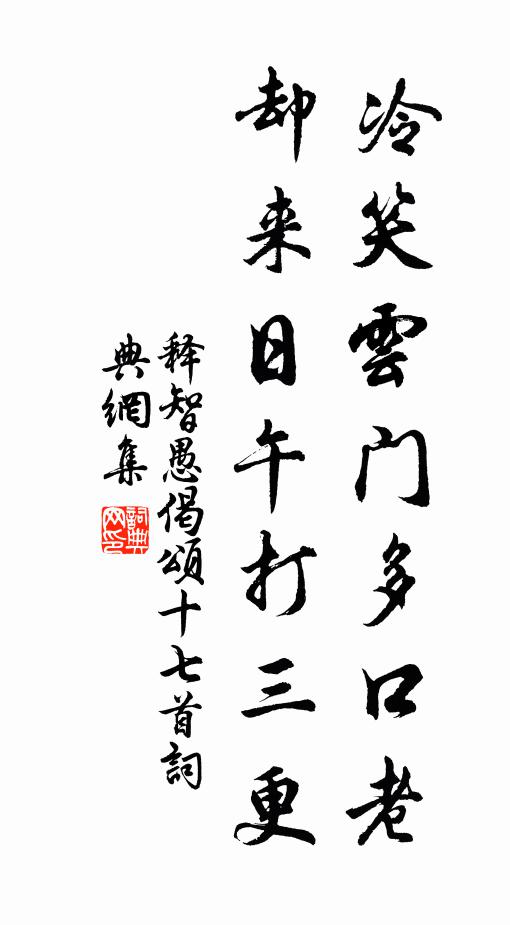 冷笑雲门多口老
却来日午打三更
释智愚偈頌十七首詞
典網集
詞典网印